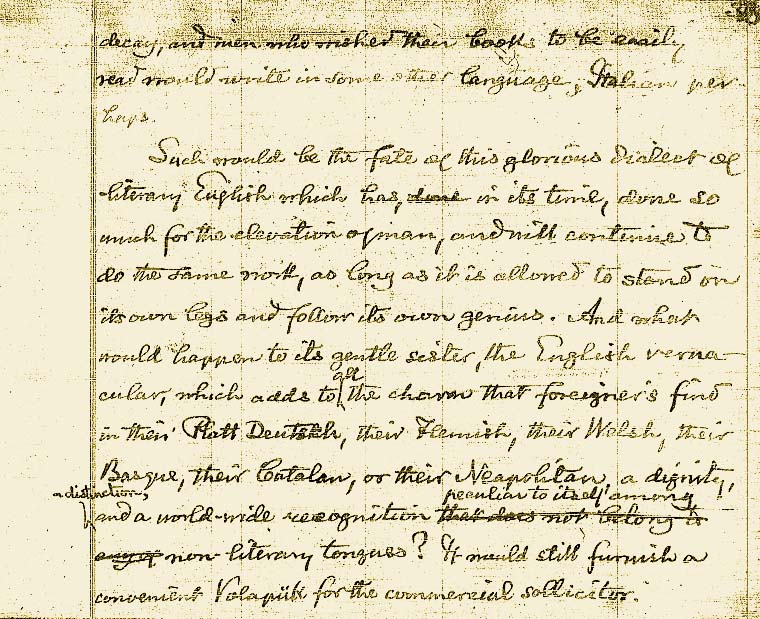 decay, and men who wished their books to be easily
read would write in some other language, Italian per-
haps.
Such would be the fate of this glorious dialect of
literary English which has, done in its time, done so
much for the elevation of man, and will continue to
do the same work, as long as it is allowed to stand on
its own legs and follow its own genius. And what
would happen to its gentle sister, the English verna-
cular, which adds to all the charm that foreigners find
in their Platt Deutsch, their Flemish, their Welsh, their
Basque, their Catalan, or their Neapolitan, a dignity,
a distinction, peculiar to itself among
and a world-wide recognition that does not belong to
any of non-literary tongues? It would still furnish a
convenient Volapük for the commercial sollicitor.